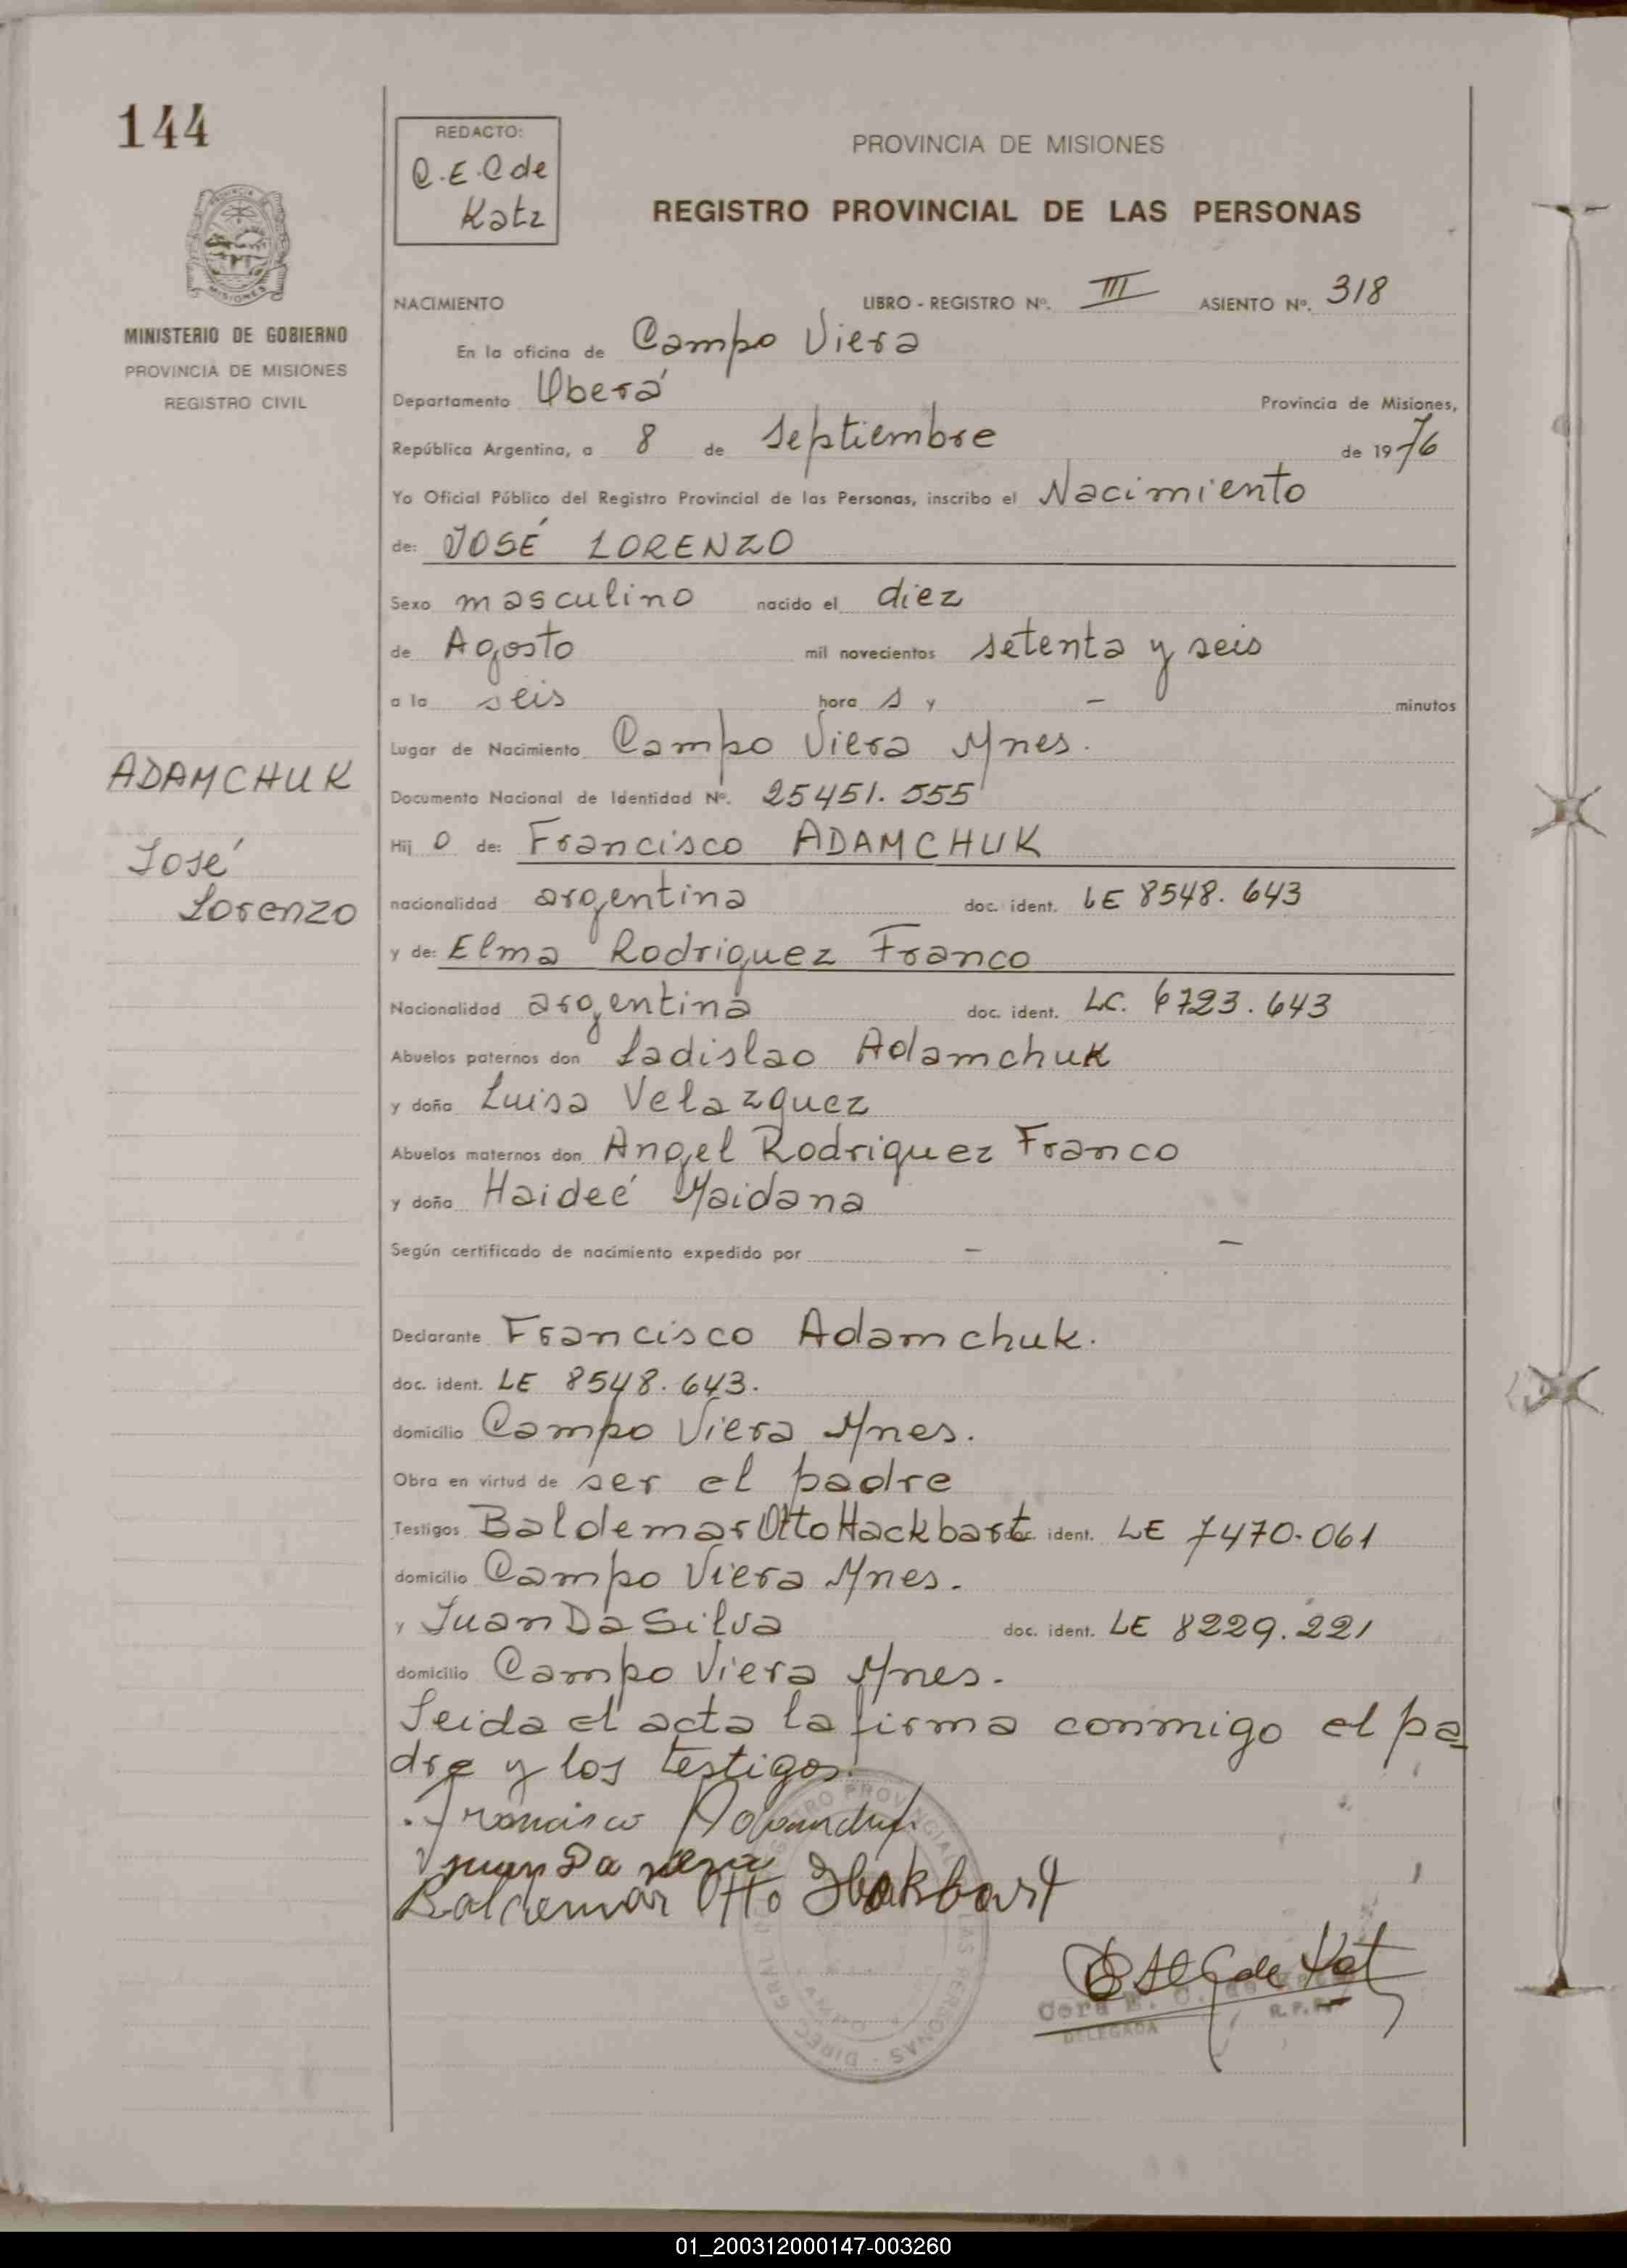 144
REDACTO:
C.E.C de
Katz
PROVINCIA DE MISIONES
REGISTRO PROVINCIAL DE LAS PERSONAS
MISIONES
MINISTERIO DE GOBIERNO
PROVINCIA DE MISIONES
REGISTRO CIVIL
NACIMIENTO LIBRO - REGISTRO Nº. III ASIENTO Nº. 318
En la oficina de Campo Viera
Departamento Oberá Provincia de Misiones,
República Argentina, a 8 de Septiembre de 1976
Yo Oficial Público del Registro Provincial de las Personas, inscribo el Nacimiento
de: JOSÉ LORENZO
Sexo masculino nacido el diez
de Agosto mil novecientos setenta y seis
a la seis hora s y - minutos
Lugar de Nacimiento Campo Viera Mnes.
ADAMCHUK
José
Lorenzo
Documento Nacional de Identidad Nº. 25451.555
Hij o de: Francisco ADAMCHUK
nacionalidad argentina doc. ident. LE 8548.643
y de: Elma Rodriguez Franco
Nacionalidad argentina doc. ident. LC. 6723.643
Abuelos paternos don Ladislao Adamchuk
y doña Luisa Velazquez
Abuelos maternos don Angel Rodriguez Franco
y doña Haideé Maidana
Según certificado de nacimiento expedido por - -
Declarante Francisco Adamchuk.
doc. ident. LE 8548.643.
domicilio Campo Viera Mnes.
Obra en virtud de ser el padre
Testigos Baldemar Otto Hackbart doc. ident. LE 7470.061
domicilio Campo Viera Mnes.
y Juan Da Silva doc. ident. LE 8229.221
domicilio Campo Viera Mnes.
Leida el acta la firma conmigo el pa
dre y los testigos.
Francisco Adamchuk
Juan Da
Baldemar Otto Hakbart
Cora E. C. de
DELEGADA R.P.P.
01_200312000147-003260